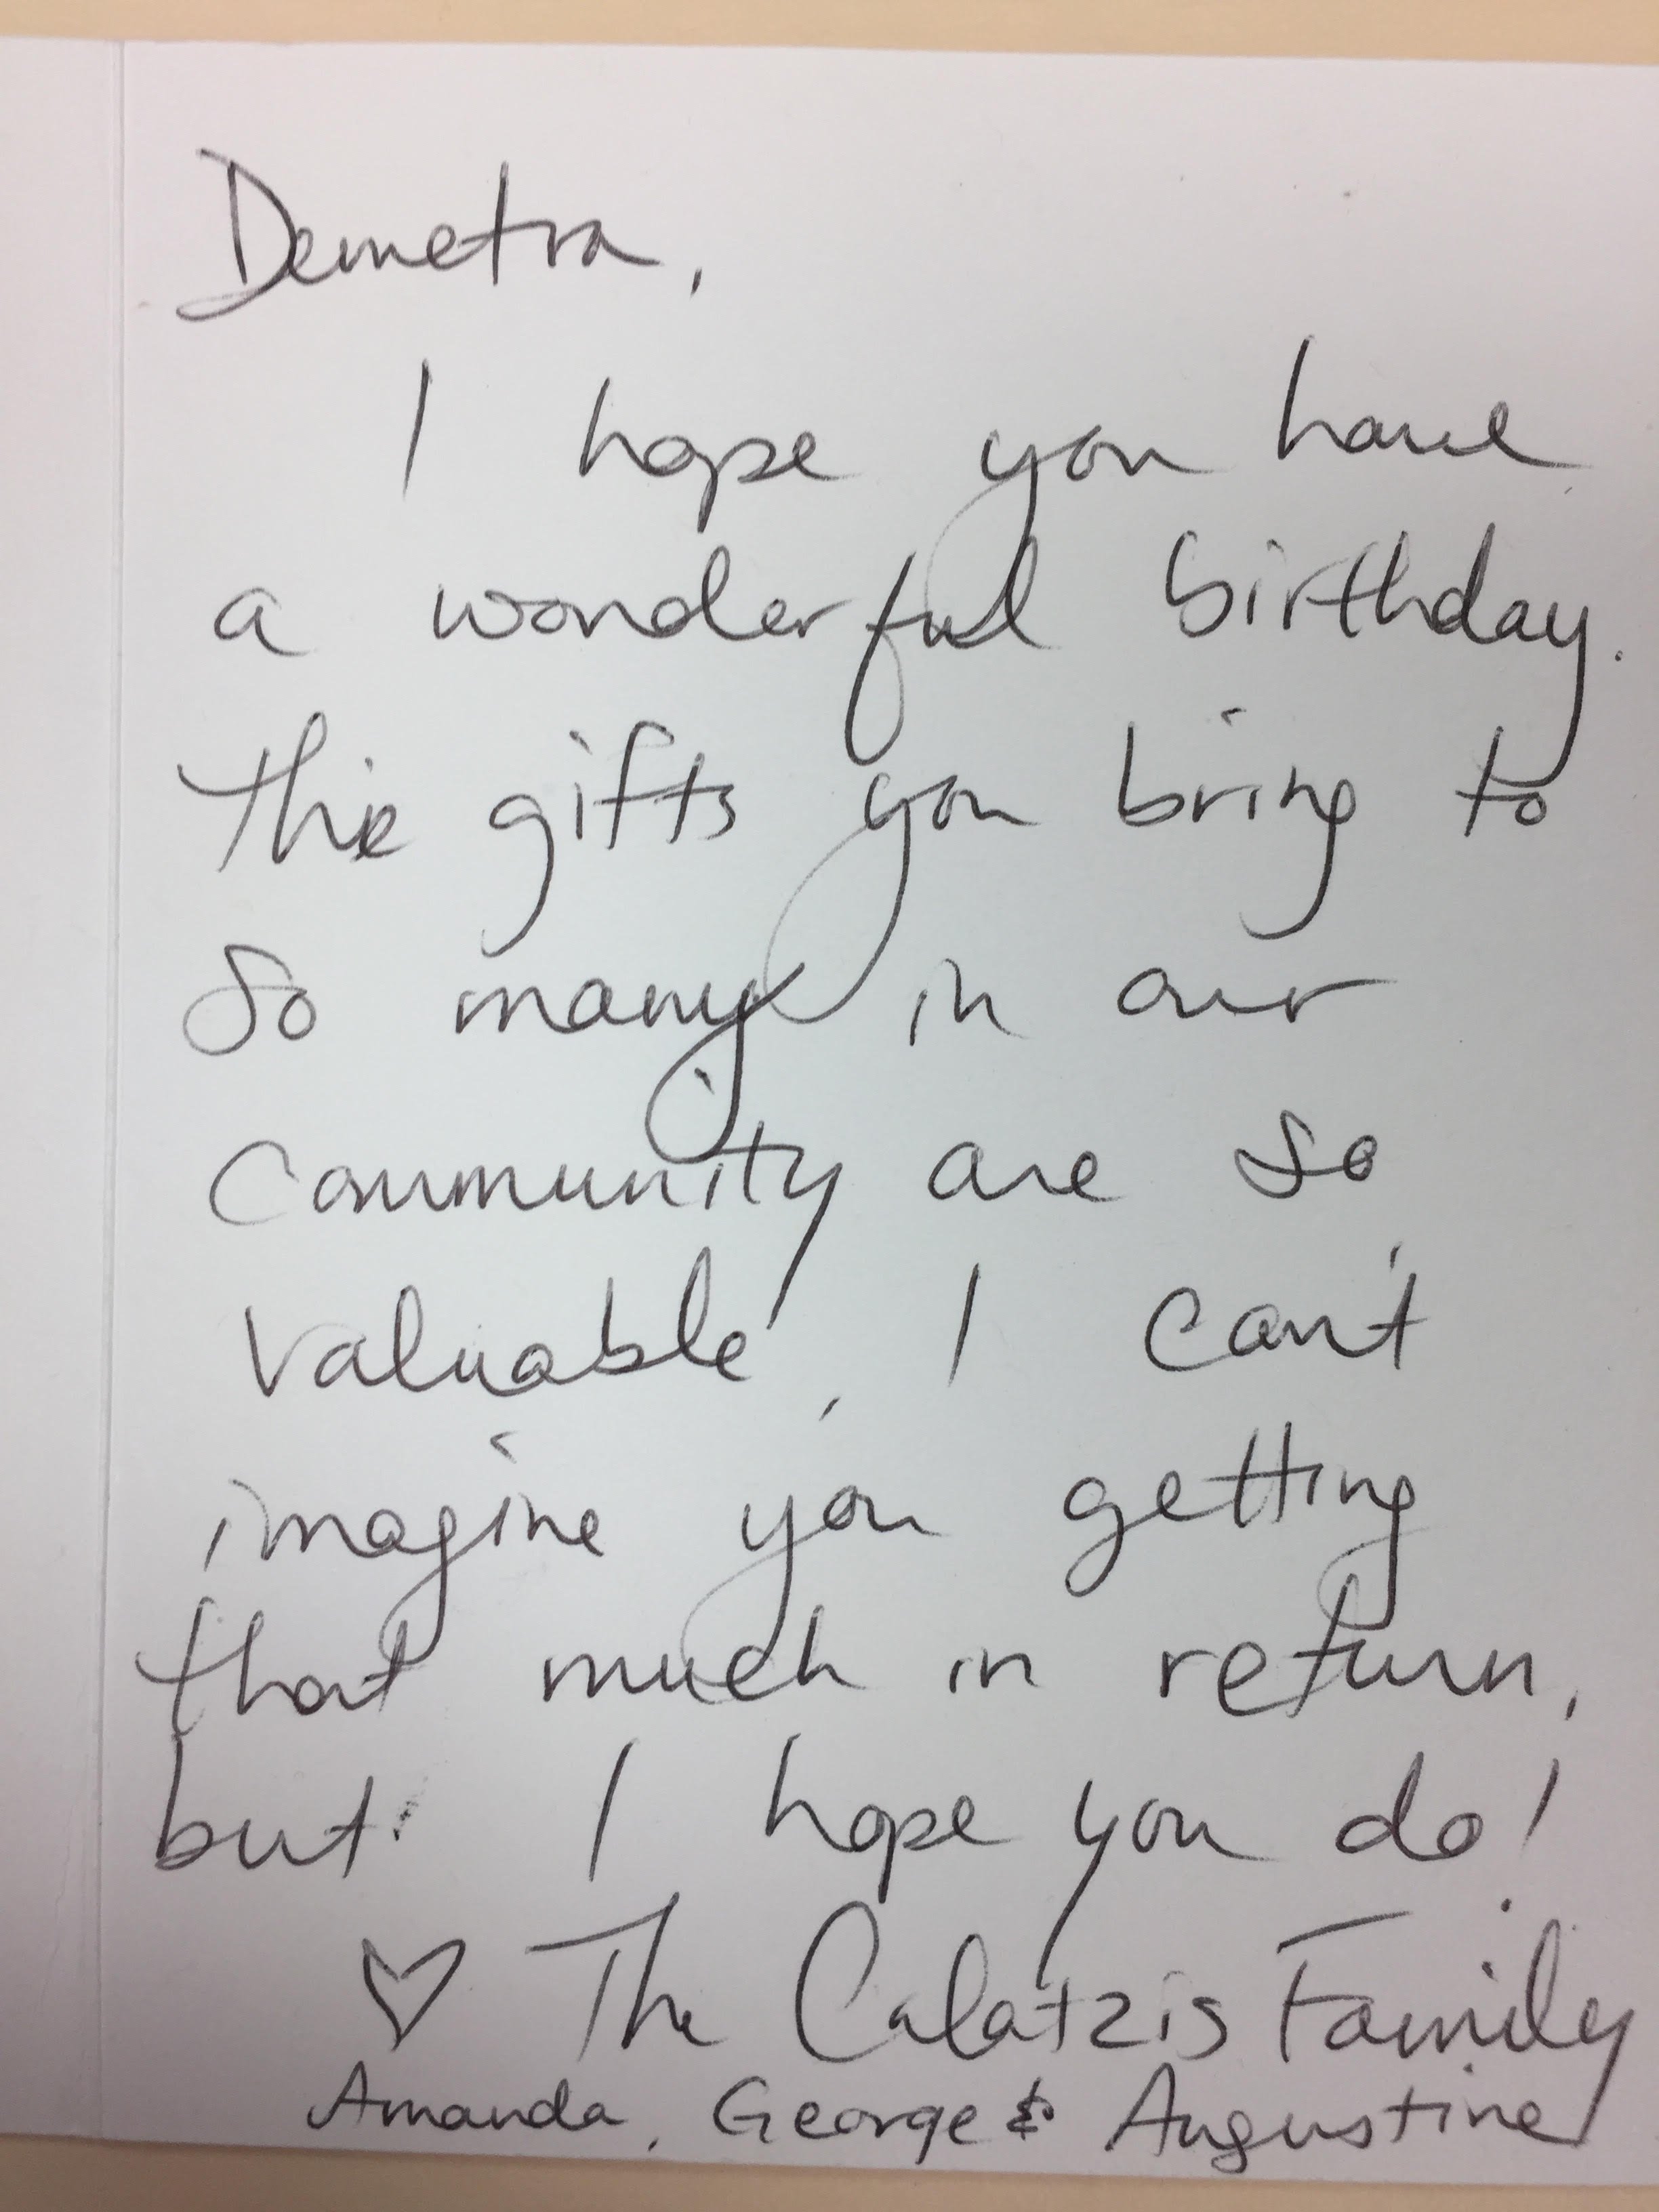 Demetra,
I hope you have
a wonderful birthday.
The gifts you bring to
so many in our
Community are so
valuable, I can't
imagine you getting
that much in return,
but I hope you do!
♡ The Calatzis Family
Amanda, George & Augustine